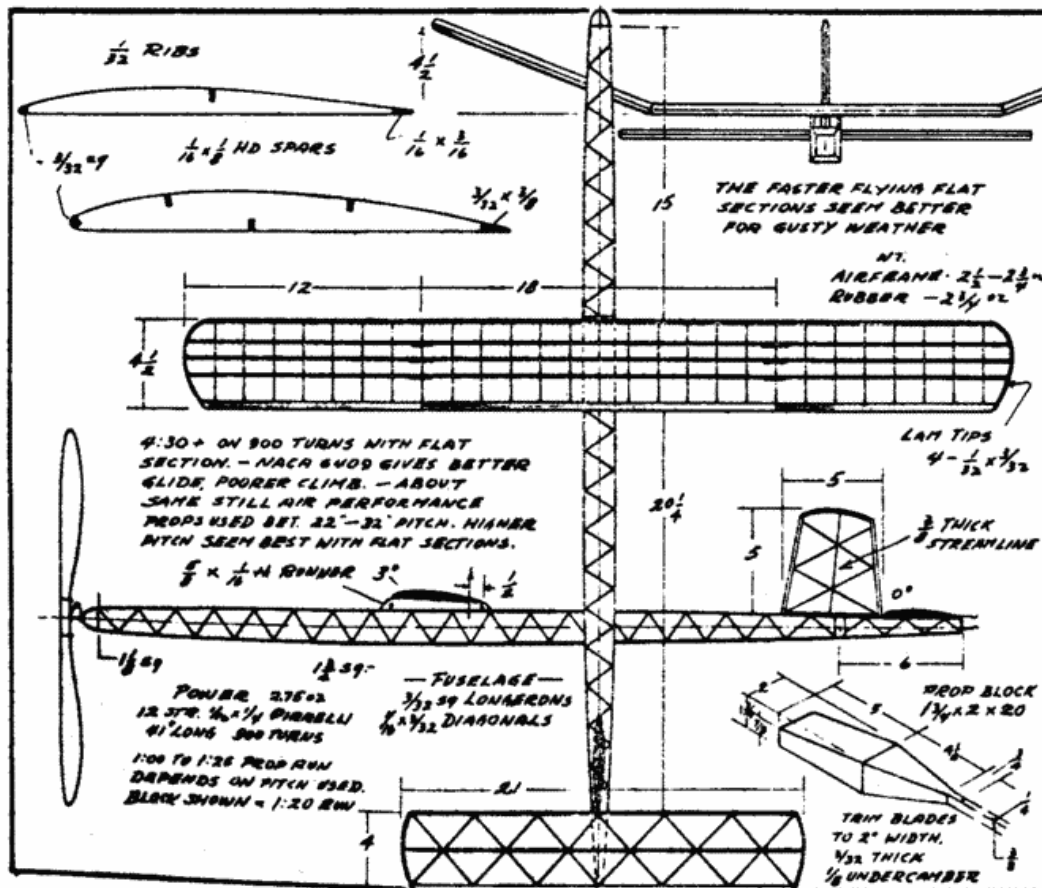 1/32 RIBS
4 1/2
3/32 SQ
1/16 x 1/8 HD SPARS
1/16 x 3/16
3/32 x 3/8
15
THE FASTER FLYING FLAT
SECTIONS SEEM BETTER
FOR GUSTY WEATHER
WT.
AIRFRAME - 2 1/2 - 2 3/4
RUBBER - 2 3/4 OZ
12
18
4 1/2
LAM TIPS
4 - 1/32 x 3/32
4:30 + ON 900 TURNS WITH FLAT
SECTION. - NACA 6409 GIVES BETTER
GLIDE, POORER CLIMB. - ABOUT
SAME STILL AIR PERFORMANCE
PROPS USED BET. 22" - 32" PITCH. HIGHER
PITCH SEEM BEST WITH FLAT SECTIONS.
20 1/4
5
5
THICK
STREAMLINE
x 1/16 RUNNER
3°
1/2
0°
SQ
SQ.
6
POWER 2.75 OZ
12 STR. x 1/4 PIRELLI
41" LONG 900 TURNS
1:00 TO 1:25 PROP RUN
DEPENDS ON PITCH USED.
BLOCK SHOWN = 1:20 RUN
- FUSELAGE -
3/32 SQ LONGERONS
1/16 x 3/32 DIAGONALS
PROP BLOCK
1 3/4 x 2 x 20
2
5
3/4
1/4
3/8
TRIM BLADES
TO 2" WIDTH,
3/32 THICK
1/8 UNDERCAMBER
21
4